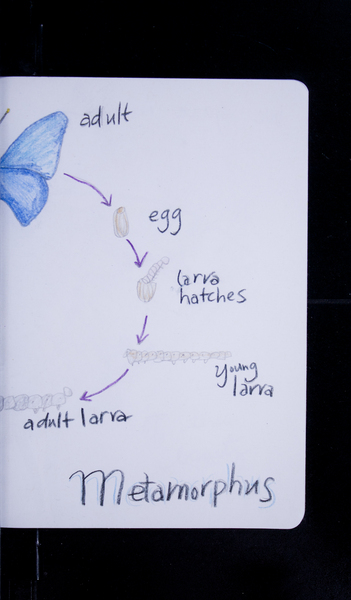 adult
egg
larva
hatches
young
larva
adult larva
Metamorphus